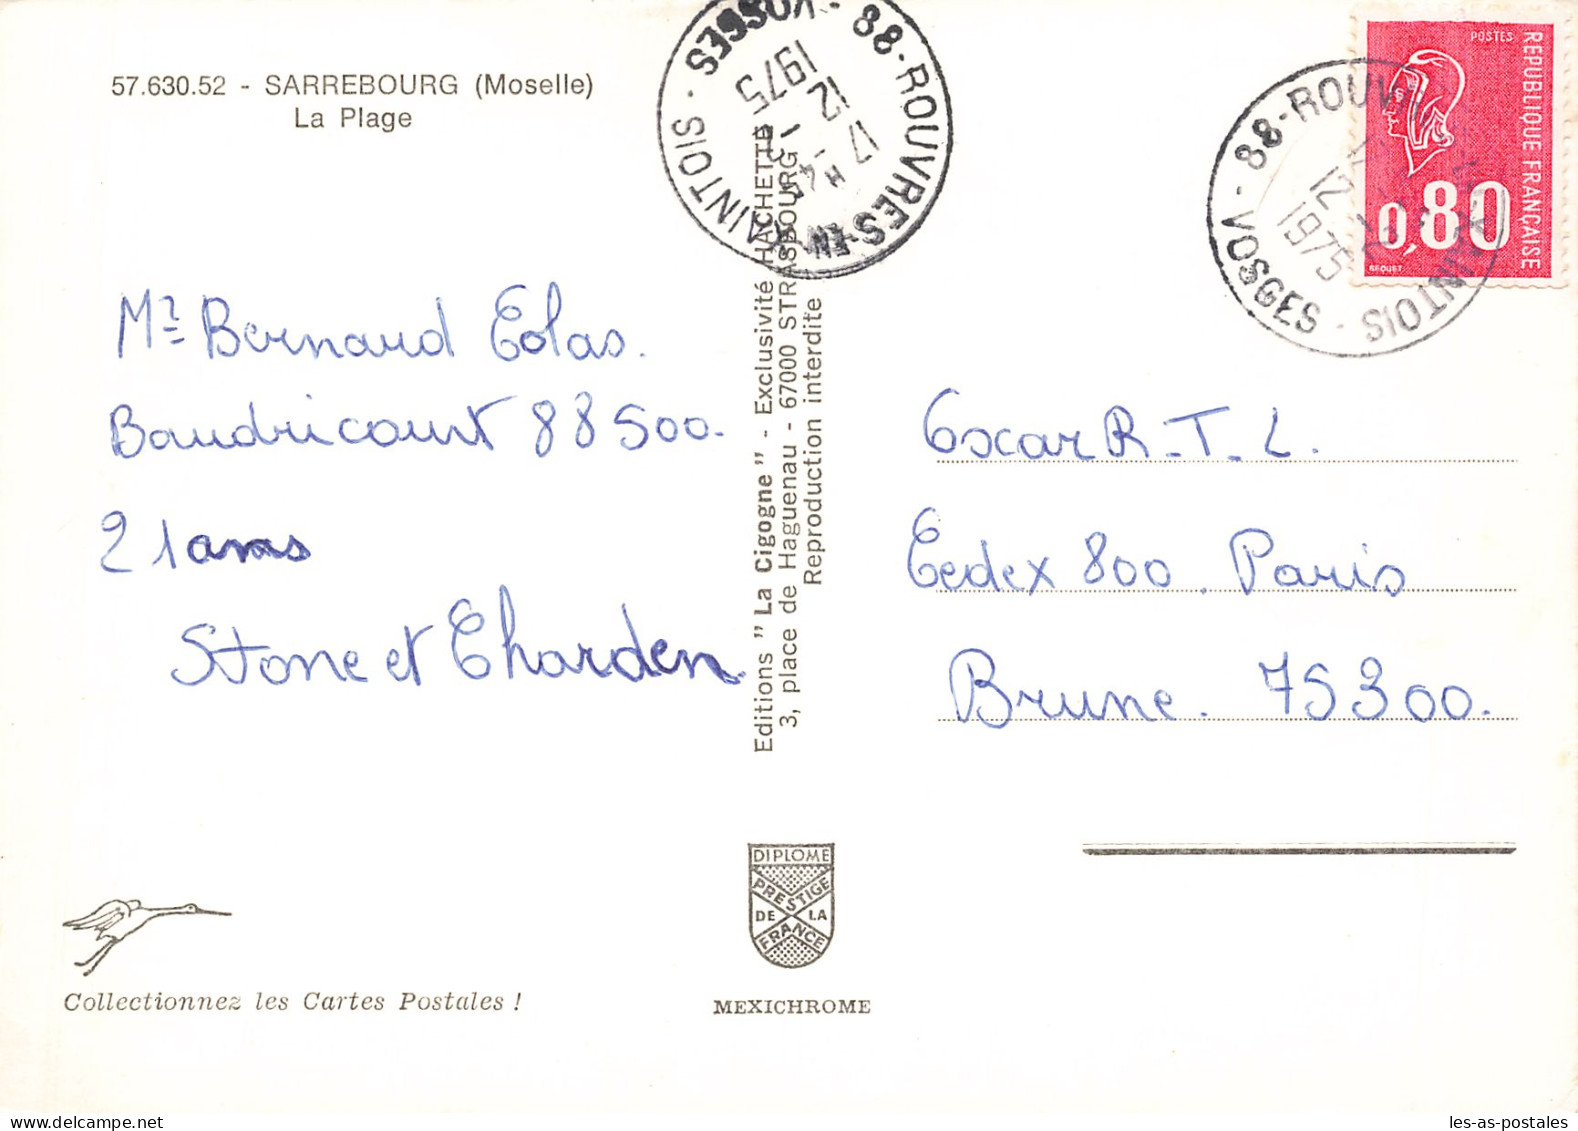 57.630.52 - SARREBOURG (Moselle)
La Plage
88-ROUVRES-EN XAINTOIS - VOSGES
17 H 45
12
1975
POSTES
REPUBLIQUE FRANÇAISE
0,80
BEQUET
88-ROUV
XAINTOIS - VOSGES
12
1975
Mr Bernard Colas.
Baudricourt 88500.
21 ans
Stone et Charden
Editions " La Cigogne " - Exclusivité HACHETTE
3, place de Haguenau - 67000 STRASBOURG
Reproduction interdite
Oscar R.T.L.
Cedex 800. Paris
Brune. 75300.
DIPLOME
PRESTIGE
DE LA
FRANCE
Collectionnez les Cartes Postales !
MEXICHROME
les-as-postales